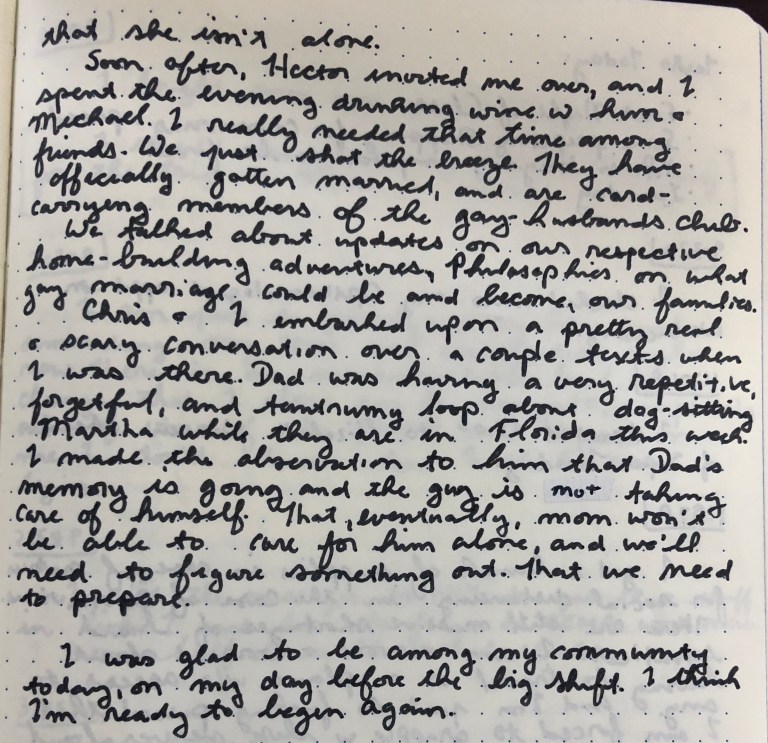 that she isn't alone.
Soon after, Hector invited me over, and I
spent the evening drinking wine w him &
Michael. I really needed that time among
friends. We just shot the breeze. They have
officially gotten married, and are card-
carrying members of the gay-husbands club.
We talked about updates on our respective
home-building adventures, Philosophies on what
gay marriage could be and become, our families.
Chris & I embarked upon a pretty real
& scary conversation over a couple texts when
I was there. Dad was having a very repetitive,
forgetful, and tantrumy loop about dog-sitting
Martha while they are in Florida this week.
I made the observation to him that Dad's
memory is going and the guy is not taking
care of himself. That, eventually, mom won't
be able to care for him alone, and we'll
need to figure something out. That we need
to prepare.
I was glad to be among my community
today, on my day before the big shift. I think
I'm ready to begin again.